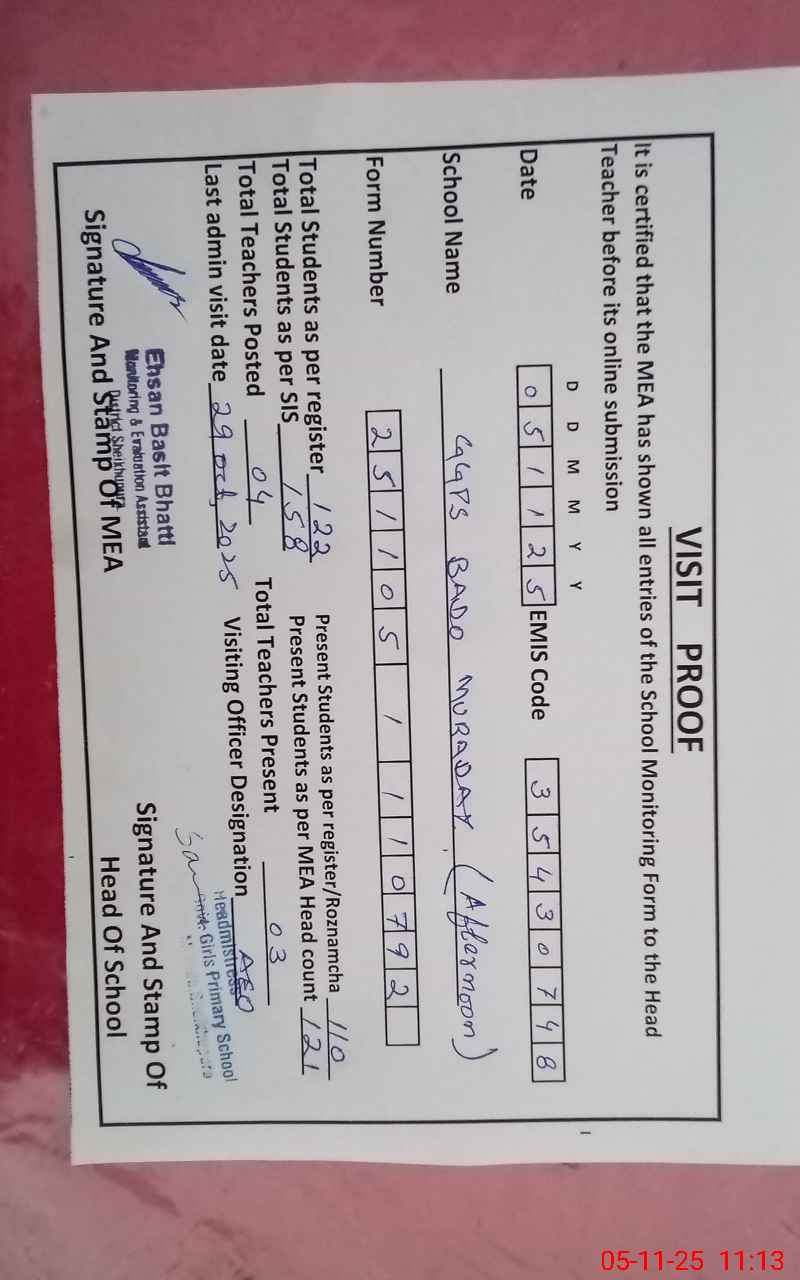 VISIT PROOF
It is certified that the MEA has shown all entries of the School Monitoring Form to the Head
Teacher before its online submission
D D M M Y Y
Date 0 5 1 1 2 5 EMIS Code 3 5 4 3 0 7 4 8
School Name GGPS BADO MURADAY (Afternoon)
Form Number 2 5 1 1 0 5 1 1 1 0 7 9 2
Total Students as per register 122 Present Students as per register/Roznamcha 110
Total Students as per SIS 158 Present Students as per MEA Head count 121
Total Teachers Posted 04 Total Teachers Present 03
Last admin visit date 29 Oct, 2025 Visiting Officer Designation AEO
Ehsan Basit Bhatti
Monitoring & Evaluation Assistant
District Sheikhupura
Signature And Stamp Of MEA
Headmistress
Girls Primary School
Signature And Stamp Of
Head Of School
05-11-25 11:13